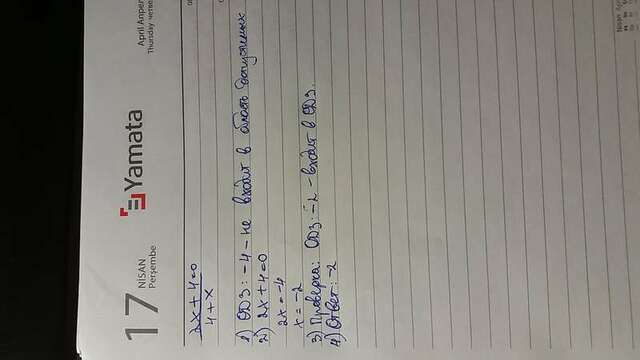 17
NİSAN
Perşembe
Yamata
April Апрел
Thursday четве
2x + 4 = 0
4 + x
1) ОДЗ: -4 - не входит в область допустимых
2) 2x + 4 = 0
2x = -4
x = -2
3) Проверка: ОДЗ: -2 - входит в ОДЗ.
4) Ответ: -2
Nisan